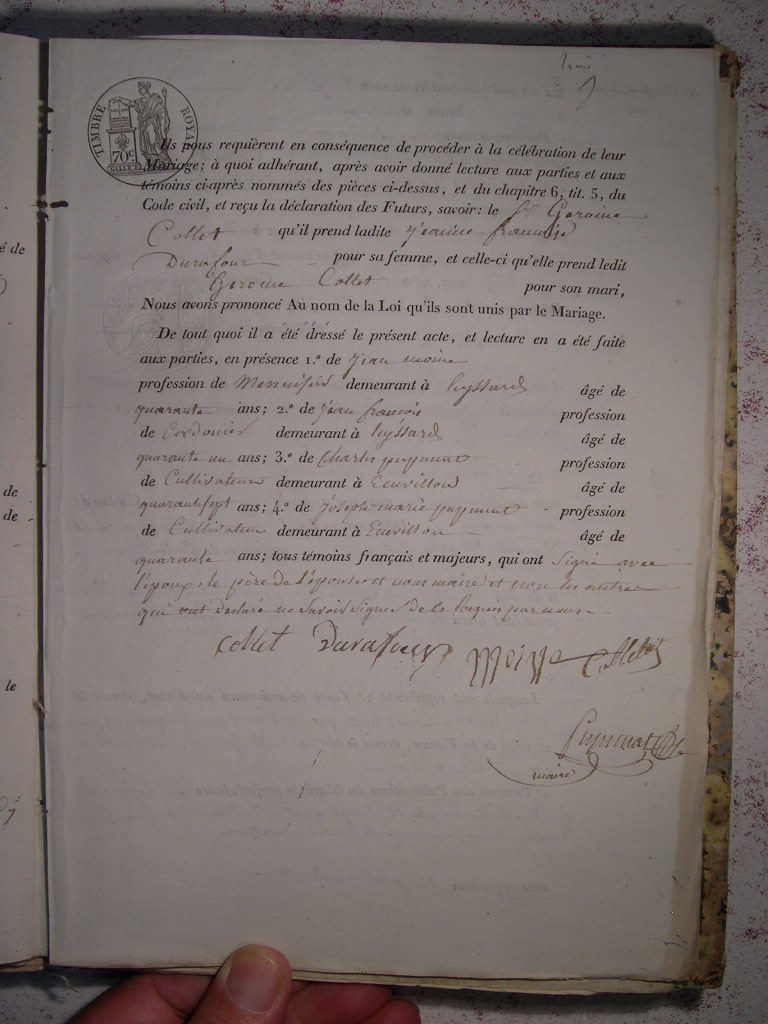 TIMBRE ROYAL
70c
Ils nous requièrent en conséquence de procéder à la célébration de leur
Mariage; à quoi adhérant, après avoir donné lecture aux parties et aux
témoins ci-après nommés des pièces ci-dessus, et du chapitre 6, tit. 5, du
Code civil, et reçu la déclaration des Futurs, savoir: le Sr Gerome
Collet qu'il prend ladite jeanne francoise
Durafour pour sa femme, et celle-ci qu'elle prend ledit
Gerome Collet pour son mari,
Nous avons prononcé Au nom de la Loi qu'ils sont unis par le Mariage.
De tout quoi il a été dressé le présent acte, et lecture en a été faite
aux parties, en présence 1.º de jean moine
profession de demeurant à leyssard âgé de
quarante ans; 2.º de jean francois profession
de Cordonier demeurant à leyssard âgé de
quarante un ans; 3.º de Charles profession
de Cultivateur demeurant à âgé de
quarante sept ans; 4.º de joseph marie profession
de Cultivateur demeurant à âgé de
quarante ans; tous témoins français et majeurs, qui ont signé avec
l'époux, le père de l'épouse et nous maire et non les autres
qui ont declaré ne savoir signer de ce Requis par nous
collet Durafour Collet
maire
é de
de
de
le